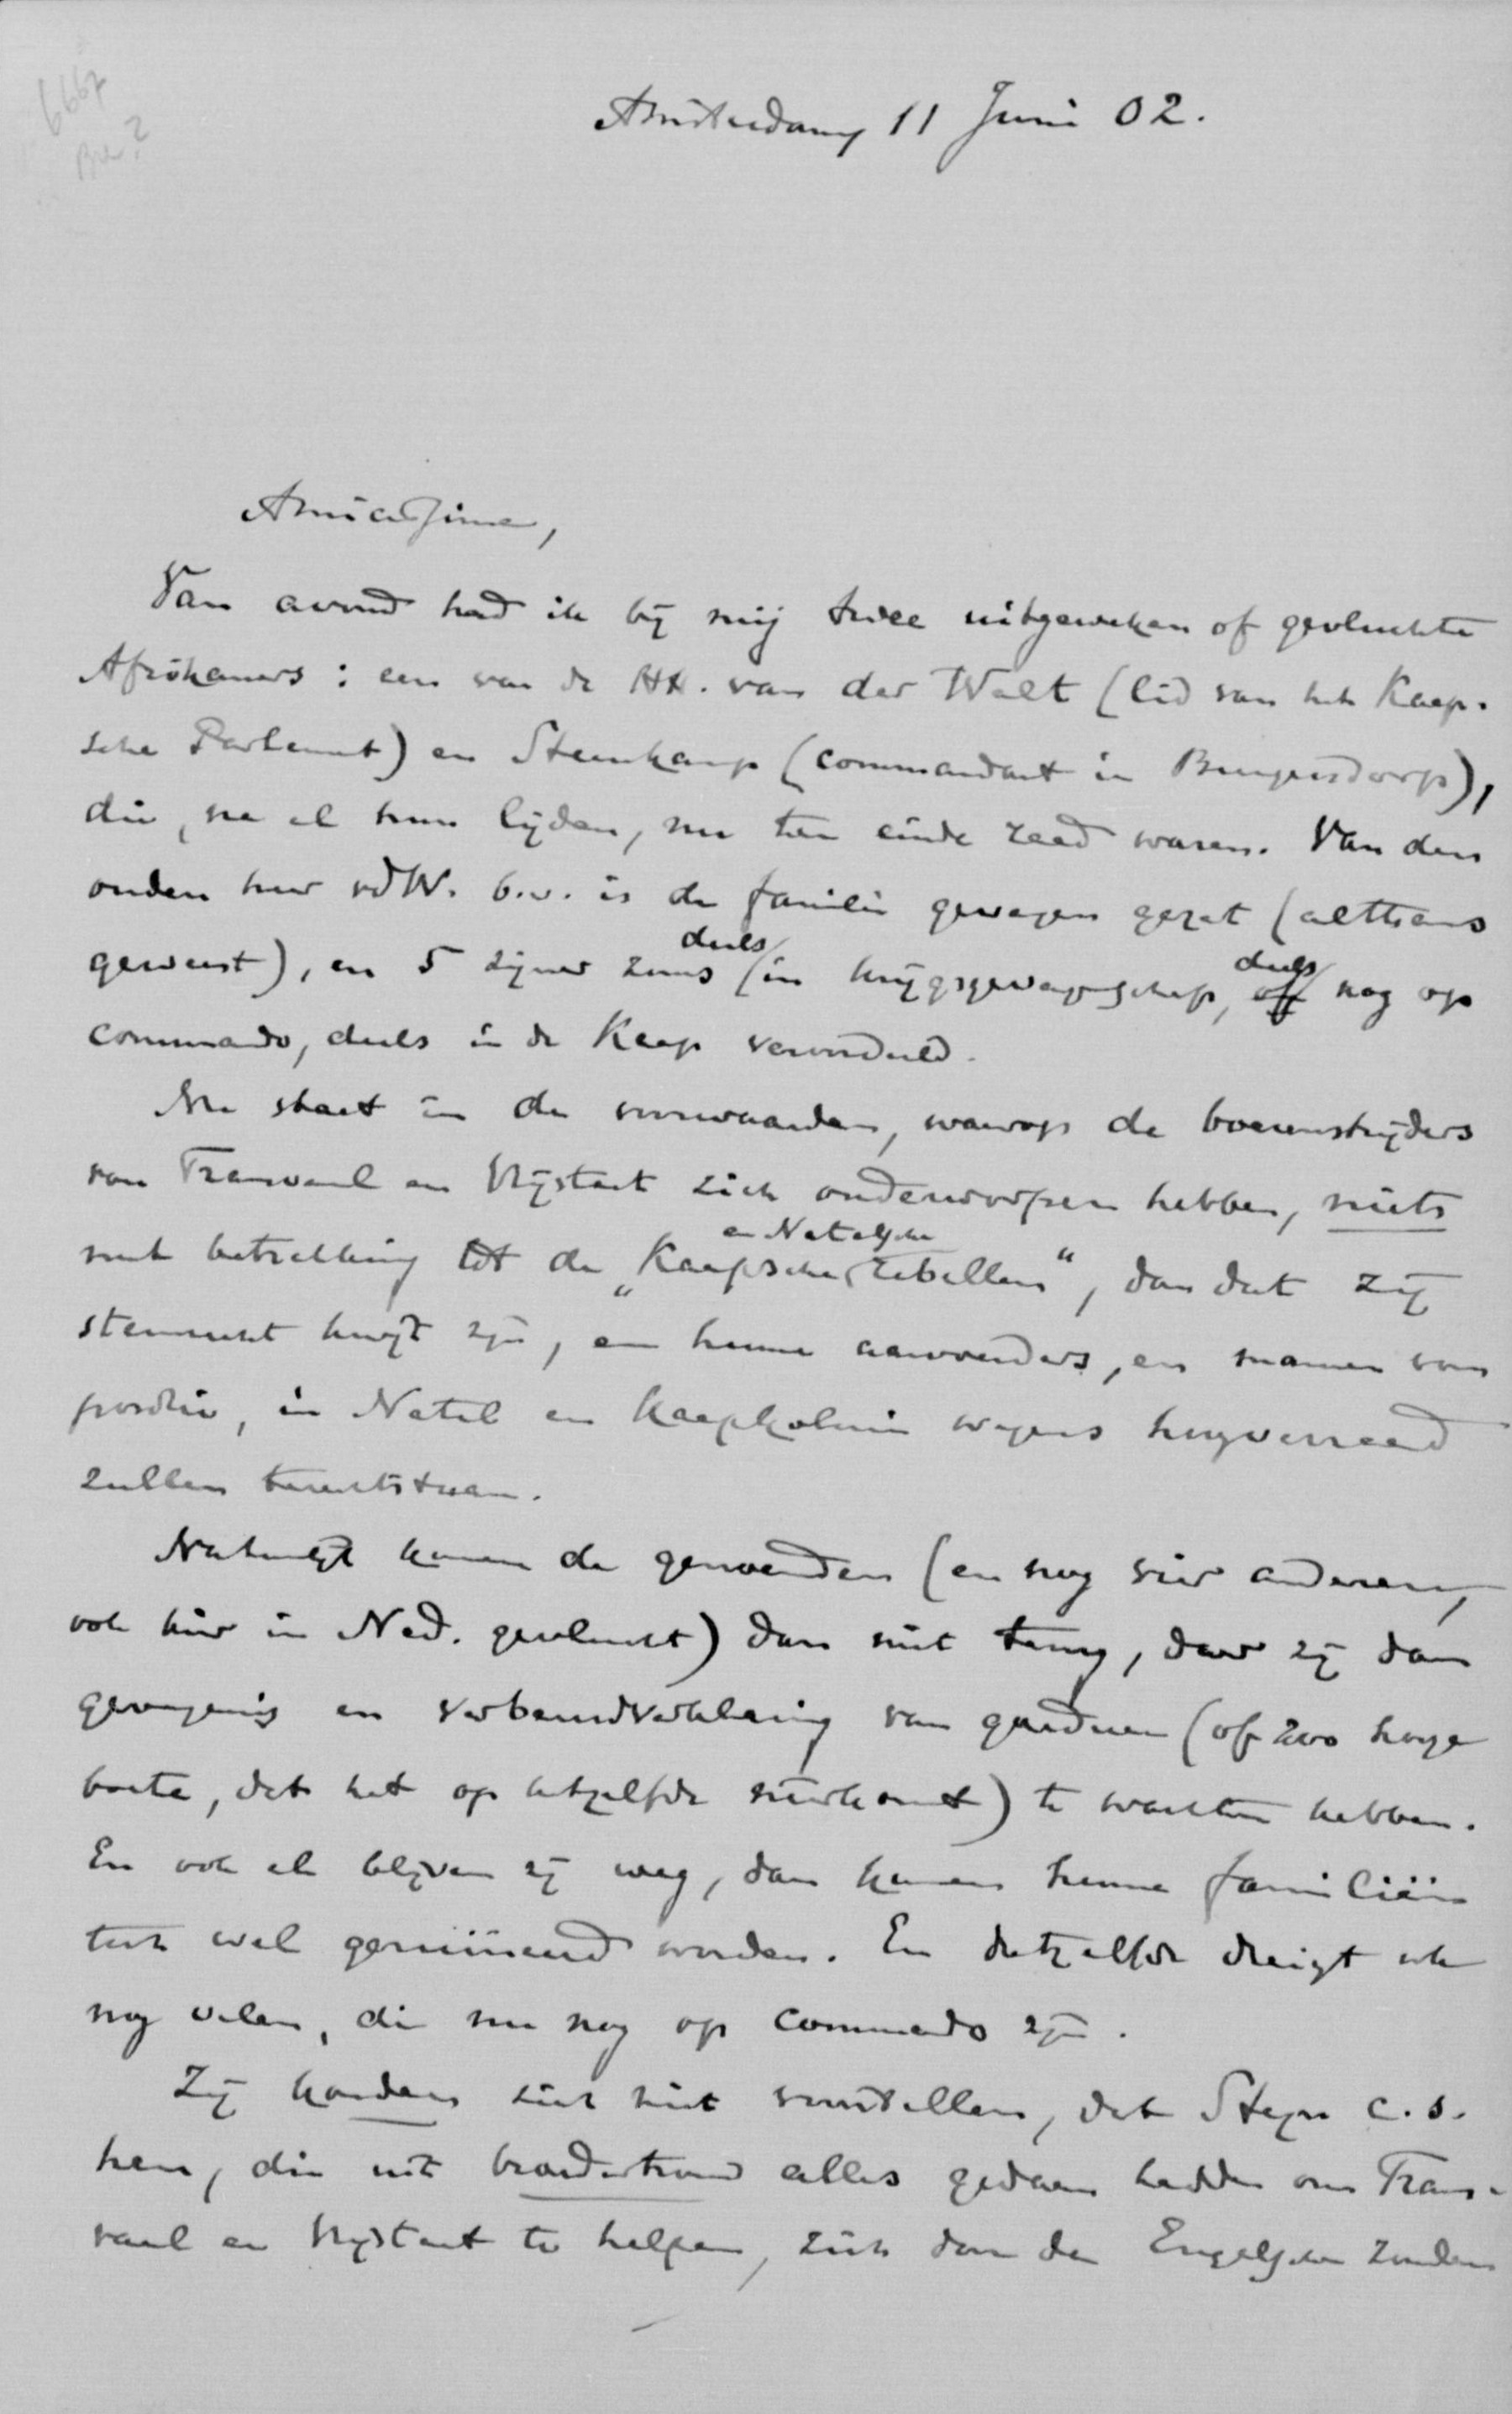 6667
Amsterdam 11 Juni 02.
Amicissime,
Van avond had ik bij mij twee uitgeweken of gevluchte
Afrikaners: een van de HH. van der Walt (lid van het Kaap-
sche Parlement) en Steenkamp (commandant in Burgersdorp),
die, na al hun lijden, nu ten einde raad waren. Van den
ouden heer vdW. b.v. is de familie gevangen gezet (althans
geweest), en 5 zijner zoons deels in krijgsgevangenschap, deels nog op
commando, deels in de Kaap veroordeeld.
Nu staat in de voorwaarden, waarop de boerenstrijders
van Transvaal en Vrijstaat zich onderworpen hebben, niets
met betrekking tot de „Kaapsche en Natalsche rebellen", dan dat zij
stemrecht kwijt zijn, en hunne aanvoerders, en mannen van
positie, in Natal en Kaapkolonie wegens hoogverraad
zullen terechtstaan.
Natuurlijk kunnen de genoemden (en nog vier anderen,
ook hier in Ned. gevlucht) dan niet terug, daar zij dan
gevangenis en verbeurdverklaring van goederen (of zoo hooge
boete, dat het op hetzelfde neerkomt) te wachten hebben.
En ook al blijven zij weg, dan kunnen hunne familiën
toch wel geruïneerd worden. En datzelfde dreigt ook
nog velen, die nu nog op commando zijn.
Zij konden zich niet voorstellen, dat Steyn c.s.
hen, die uit broedertrouw alles gedaan hadden om Trans-
vaal en Vrijstaat te helpen, zich dan de Engelschen zouden